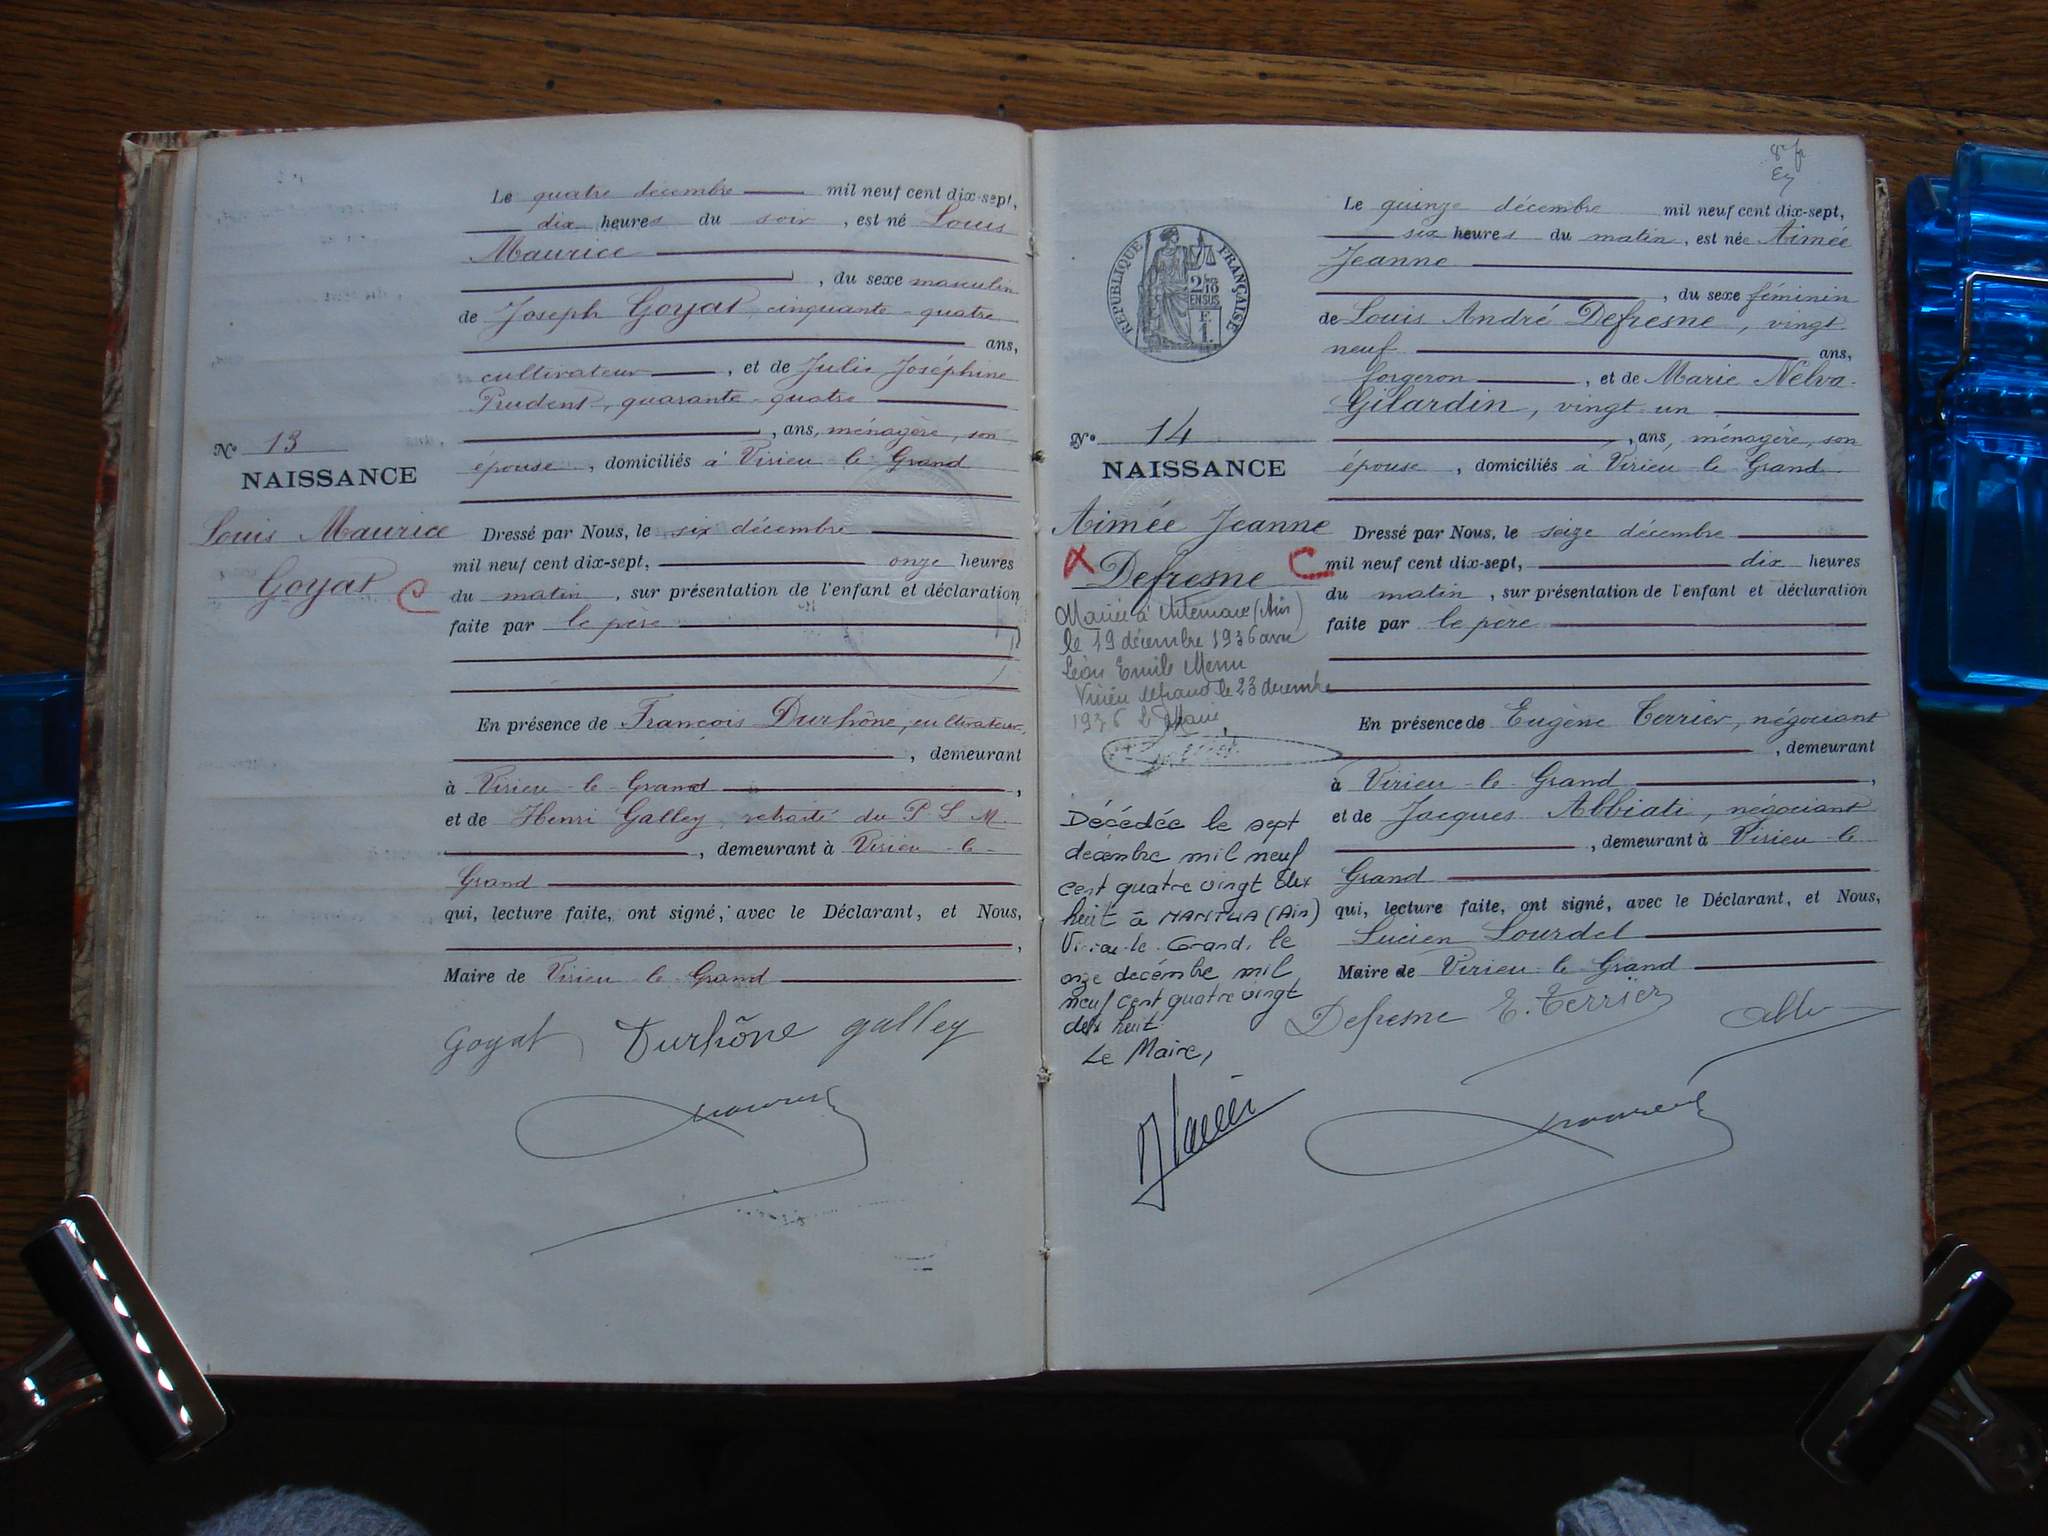 Le quatre décembre mil neuf cent dix-sept,
dix heures du soir, est né Louis
Maurice
, du sexe masculin
de Joseph Goyat, cinquante-quatre
ans,
cultivateur, et de Julie Joséphine
Prudent, quarante-quatre
, ans, ménagère, son
épouse, domiciliés à Virieu-le-Grand
Nº 13
NAISSANCE
Louis Maurice
Goyat
Dressé par Nous, le six décembre
mil neuf cent dix-sept, onze heures
du matin, sur présentation de l'enfant et déclaration
faite par le père
En présence de François Durhône, cultivateur,
, demeurant
à Virieu-le-Grand,
et de Henri Galley, retraité du P. L. M.
, demeurant à Virieu-le-
Grand
qui, lecture faite, ont signé, avec le Déclarant, et Nous,
,
Maire de Virieu-le-Grand
Goyat Durhône galley
Le quinze décembre mil neuf cent dix-sept,
six heures du matin, est née Aimée
Jeanne
, du sexe féminin
de Louis André Defresne, vingt
neuf ans,
forgeron, et de Marie Nelva-
Gilardin, vingt un
, ans, ménagère, son
épouse, domiciliés à Virieu-le-Grand
RÉPUBLIQUE FRANÇAISE
2/10
EN SUS
F.
1.
Nº 14
NAISSANCE
Aimée Jeanne
Defresne
Mariée à Artemare (Ain)
le 19 décembre 1936 avec
Léon Emile Menu
Virieu le Grand le 23 décembre
1936 le Maire
Décédée le sept
décembre mil neuf
cent quatre vingt dix
huit à NANTUA (Ain)
Virieu-le-Grand, le
onze décembre mil
neuf cent quatre vingt
dix huit.
Le Maire,
Dressé par Nous, le seize décembre
mil neuf cent dix-sept, dix heures
du matin, sur présentation de l'enfant et déclaration
faite par le père
En présence de Eugène Terrier, négociant
, demeurant
à Virieu-le-Grand,
et de Jacques Abbiati, négociant
, demeurant à Virieu-le
Grand
qui, lecture faite, ont signé, avec le Déclarant, et Nous,
Lucien Lourdel
Maire de Virieu-le-Grand
Defresne E. Terrier